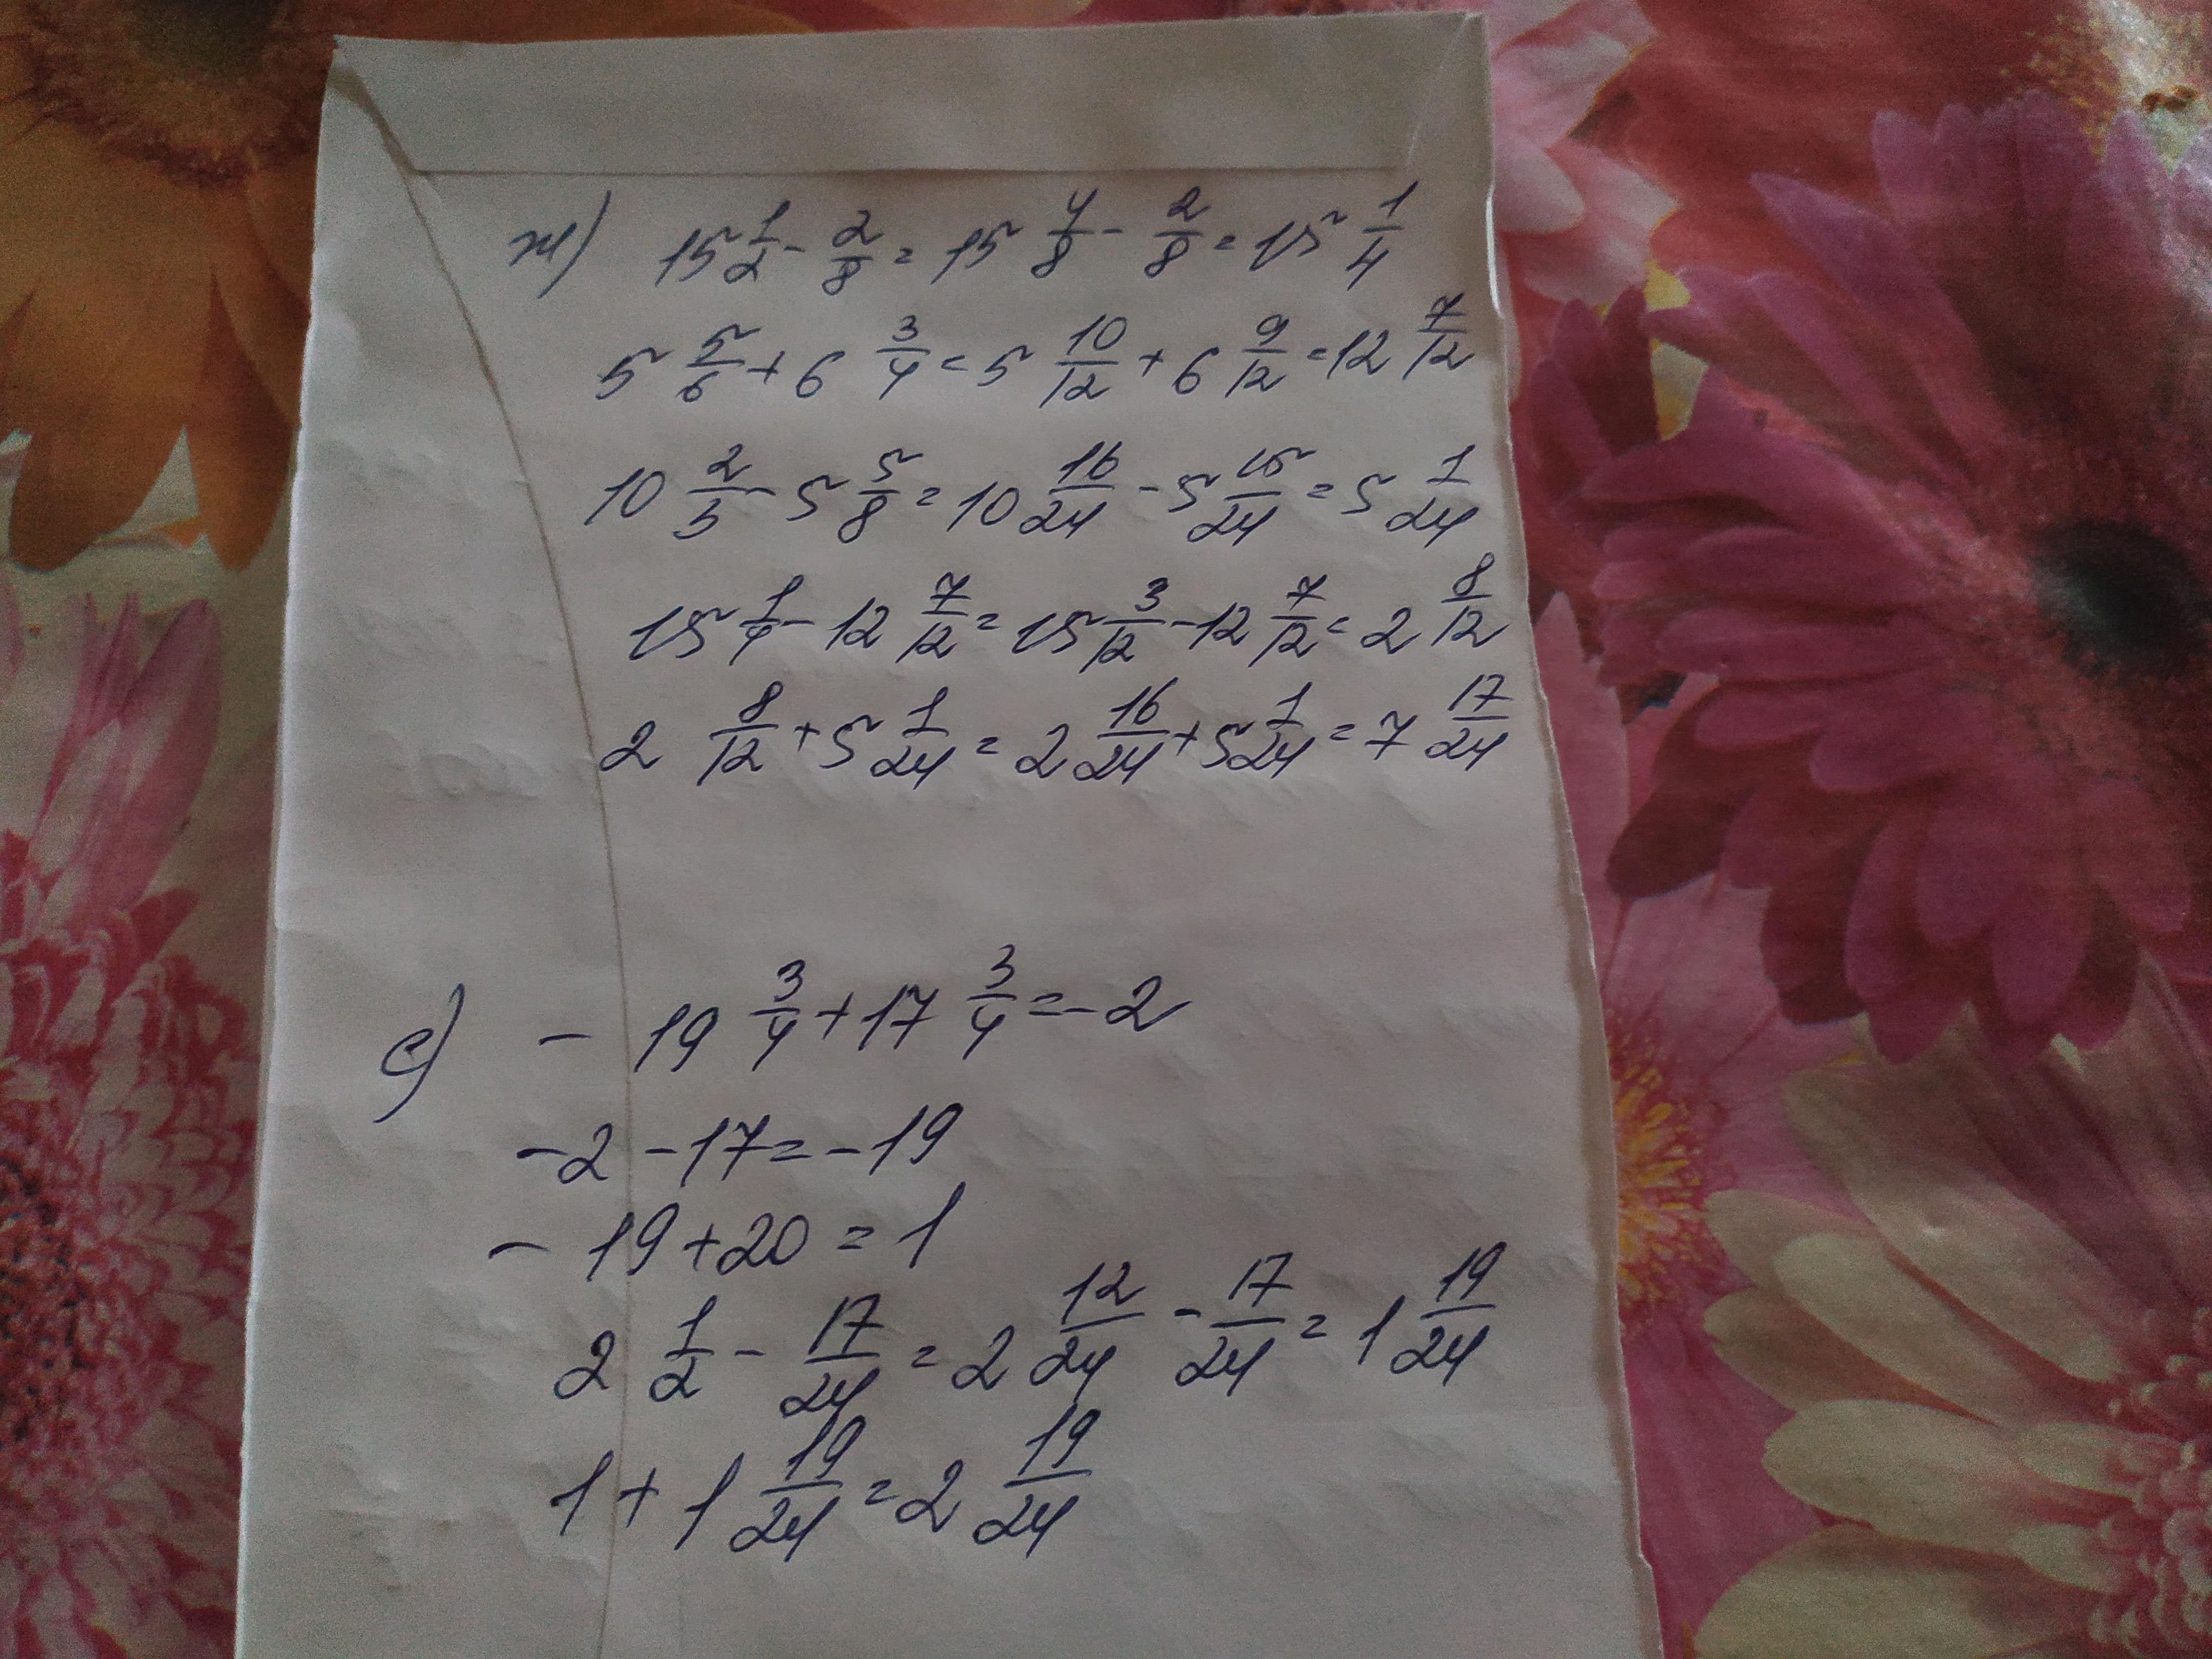 ж) 15 1/2 - 2/8 = 15 4/8 - 2/8 = 15 1/4
5 5/6 + 6 3/4 = 5 10/12 + 6 9/12 = 12 7/12
10 2/3 - 5 5/8 = 10 16/24 - 5 15/24 = 5 1/24
15 1/4 - 12 7/12 = 15 3/12 - 12 7/12 = 2 8/12
2 8/12 + 5 1/24 = 2 16/24 + 5 1/24 = 7 17/24
е) - 19 3/4 + 17 3/4 = -2
-2 - 17 = -19
- 19 + 20 = 1
2 1/2 - 17/24 = 2 12/24 - 17/24 = 1 19/24
1 + 1 19/24 = 2 19/24